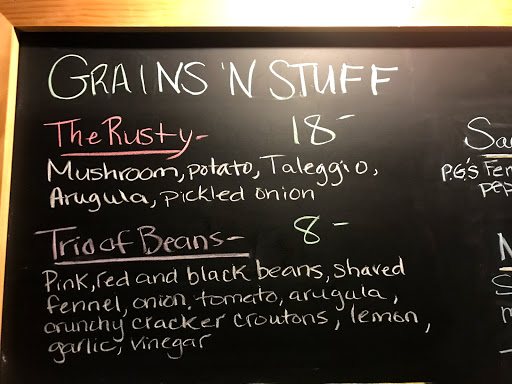 GRAINS 'N STUFF
The Rusty- 18-
Mushroom, potato, Taleggio,
Arugula, pickled onion
Trio of Beans- 8-
Pink, red and black beans, shaved
fennel, onion, tomato, arugula,
crunchy cracker croutons, lemon,
garlic, vinegar
P.G.'s